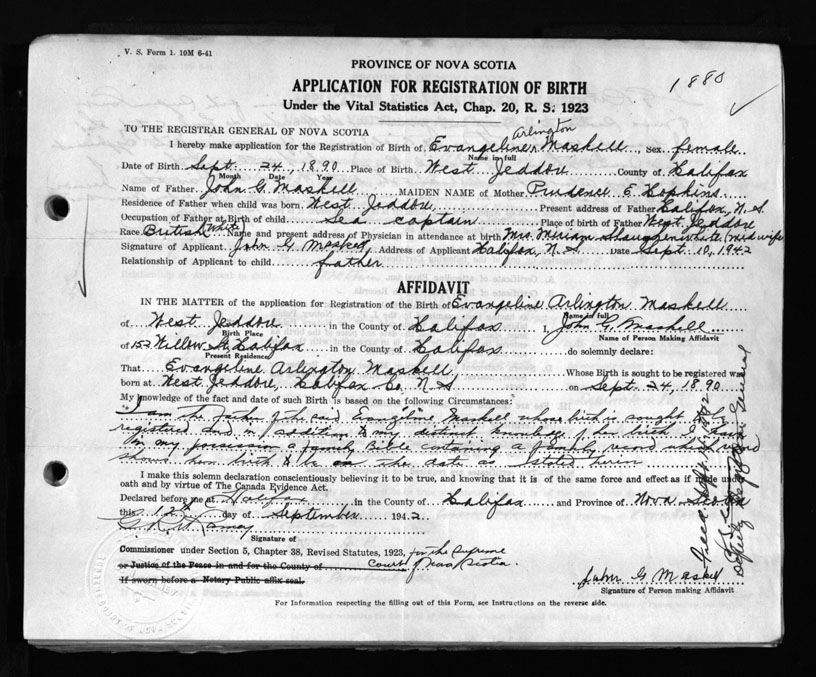 V. S. Form 1. 10M 6-41
1880
PROVINCE OF NOVA SCOTIA
APPLICATION FOR REGISTRATION OF BIRTH
Under the Vital Statistics Act, Chap. 20, R. S. 1923
TO THE REGISTRAR GENERAL OF NOVA SCOTIA
Arlington
I hereby make application for the Registration of Birth of Evangeline Maskell, Sex female
Name in full
Date of Birth Sept. 24, 1890 Place of Birth West Jeddore County of Halifax
Month Date Year
Name of Father John G. Maskell MAIDEN NAME of Mother Prudence E Hopkins
Residence of Father when child was born West Jeddore Present address of Father Halifax, N. S.
Occupation of Father at Birth of child Sea captain Place of birth of Father West Jeddore
Race British White Name and present address of Physician in attendance at birth Mrs. Miriam (midwife)
Signature of Applicant John G Maskell Address of Applicant Halifax, N. S. Date Sept. 10, 1942
Relationship of Applicant to child father
AFFIDAVIT
IN THE MATTER of the application for Registration of the Birth of Evangeline Arlington Maskell
Name in full
of West Jeddore in the County of Halifax I, John G. Maskell
Birth Place Name of Person Making Affidavit
of 152 Willow St. Halifax in the County of Halifax do solemnly declare:
Present Residence
That Evangeline Arlington Maskell Whose Birth is sought to be registered was
born at West Jeddore, Halifax Co. N. S. on Sept. 24, 1890
My knowledge of the fact and date of such Birth is based on the following Circumstances:
I am the father of the said Evangeline Maskell whose birth is sought to be
registered and in addition to my distinct knowledge of her birth I have
in my possession a family Bible containing a family record which record
shows her birth to be on the date as stated herein
I make this solemn declaration conscientiously believing it to be true, and knowing that it is of the same force and effect as if made under
oath and by virtue of The Canada Evidence Act.
Declared before me at Halifax in the County of Halifax and Province of Nova Scotia
this 12th day of September 1942
Signature of
Commissioner under Section 5, Chapter 38, Revised Statutes, 1923, for the Supreme
or Justice of the Peace in and for the County of Court of Nova Scotia
If sworn before a Notary Public affix seal.
John G Maskell
Signature of Person making Affidavit
For Information respecting the filling out of this Form, see Instructions on the reverse side.
Deputy Registrar General